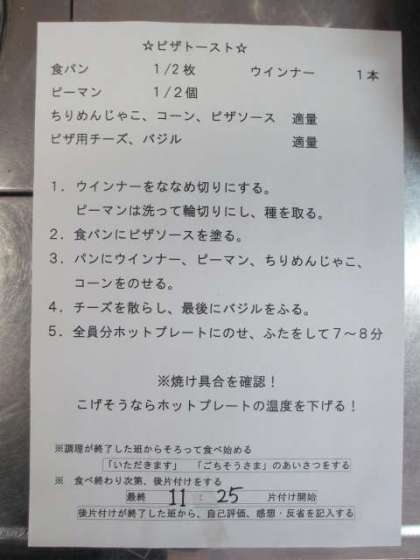 ☆ピザトースト☆
食パン　1/2枚　ウインナー　1本
ピーマン　1/2個
ちりめんじゃこ、コーン、ピザソース　適量
ピザ用チーズ、バジル　適量
1．ウインナーをななめ切りにする。
ピーマンは洗って輪切りにし、種を取る。
2．食パンにピザソースを塗る。
3．パンにウインナー、ピーマン、ちりめんじゃこ、
コーンをのせる。
4．チーズを散らし、最後にバジルをふる。
5．全員分ホットプレートにのせ、ふたをして7～8分
※焼け具合を確認！
こげそうならホットプレートの温度を下げる！
※調理が終了した班からそろって食べ始める
「いただきます」　「ごちそうさま」のあいさつをする
※　食べ終わり次第、後片付けをする
最終　11　：　25　片付け開始
後片付けが終了した班から、自己評価、感想・反省を記入する